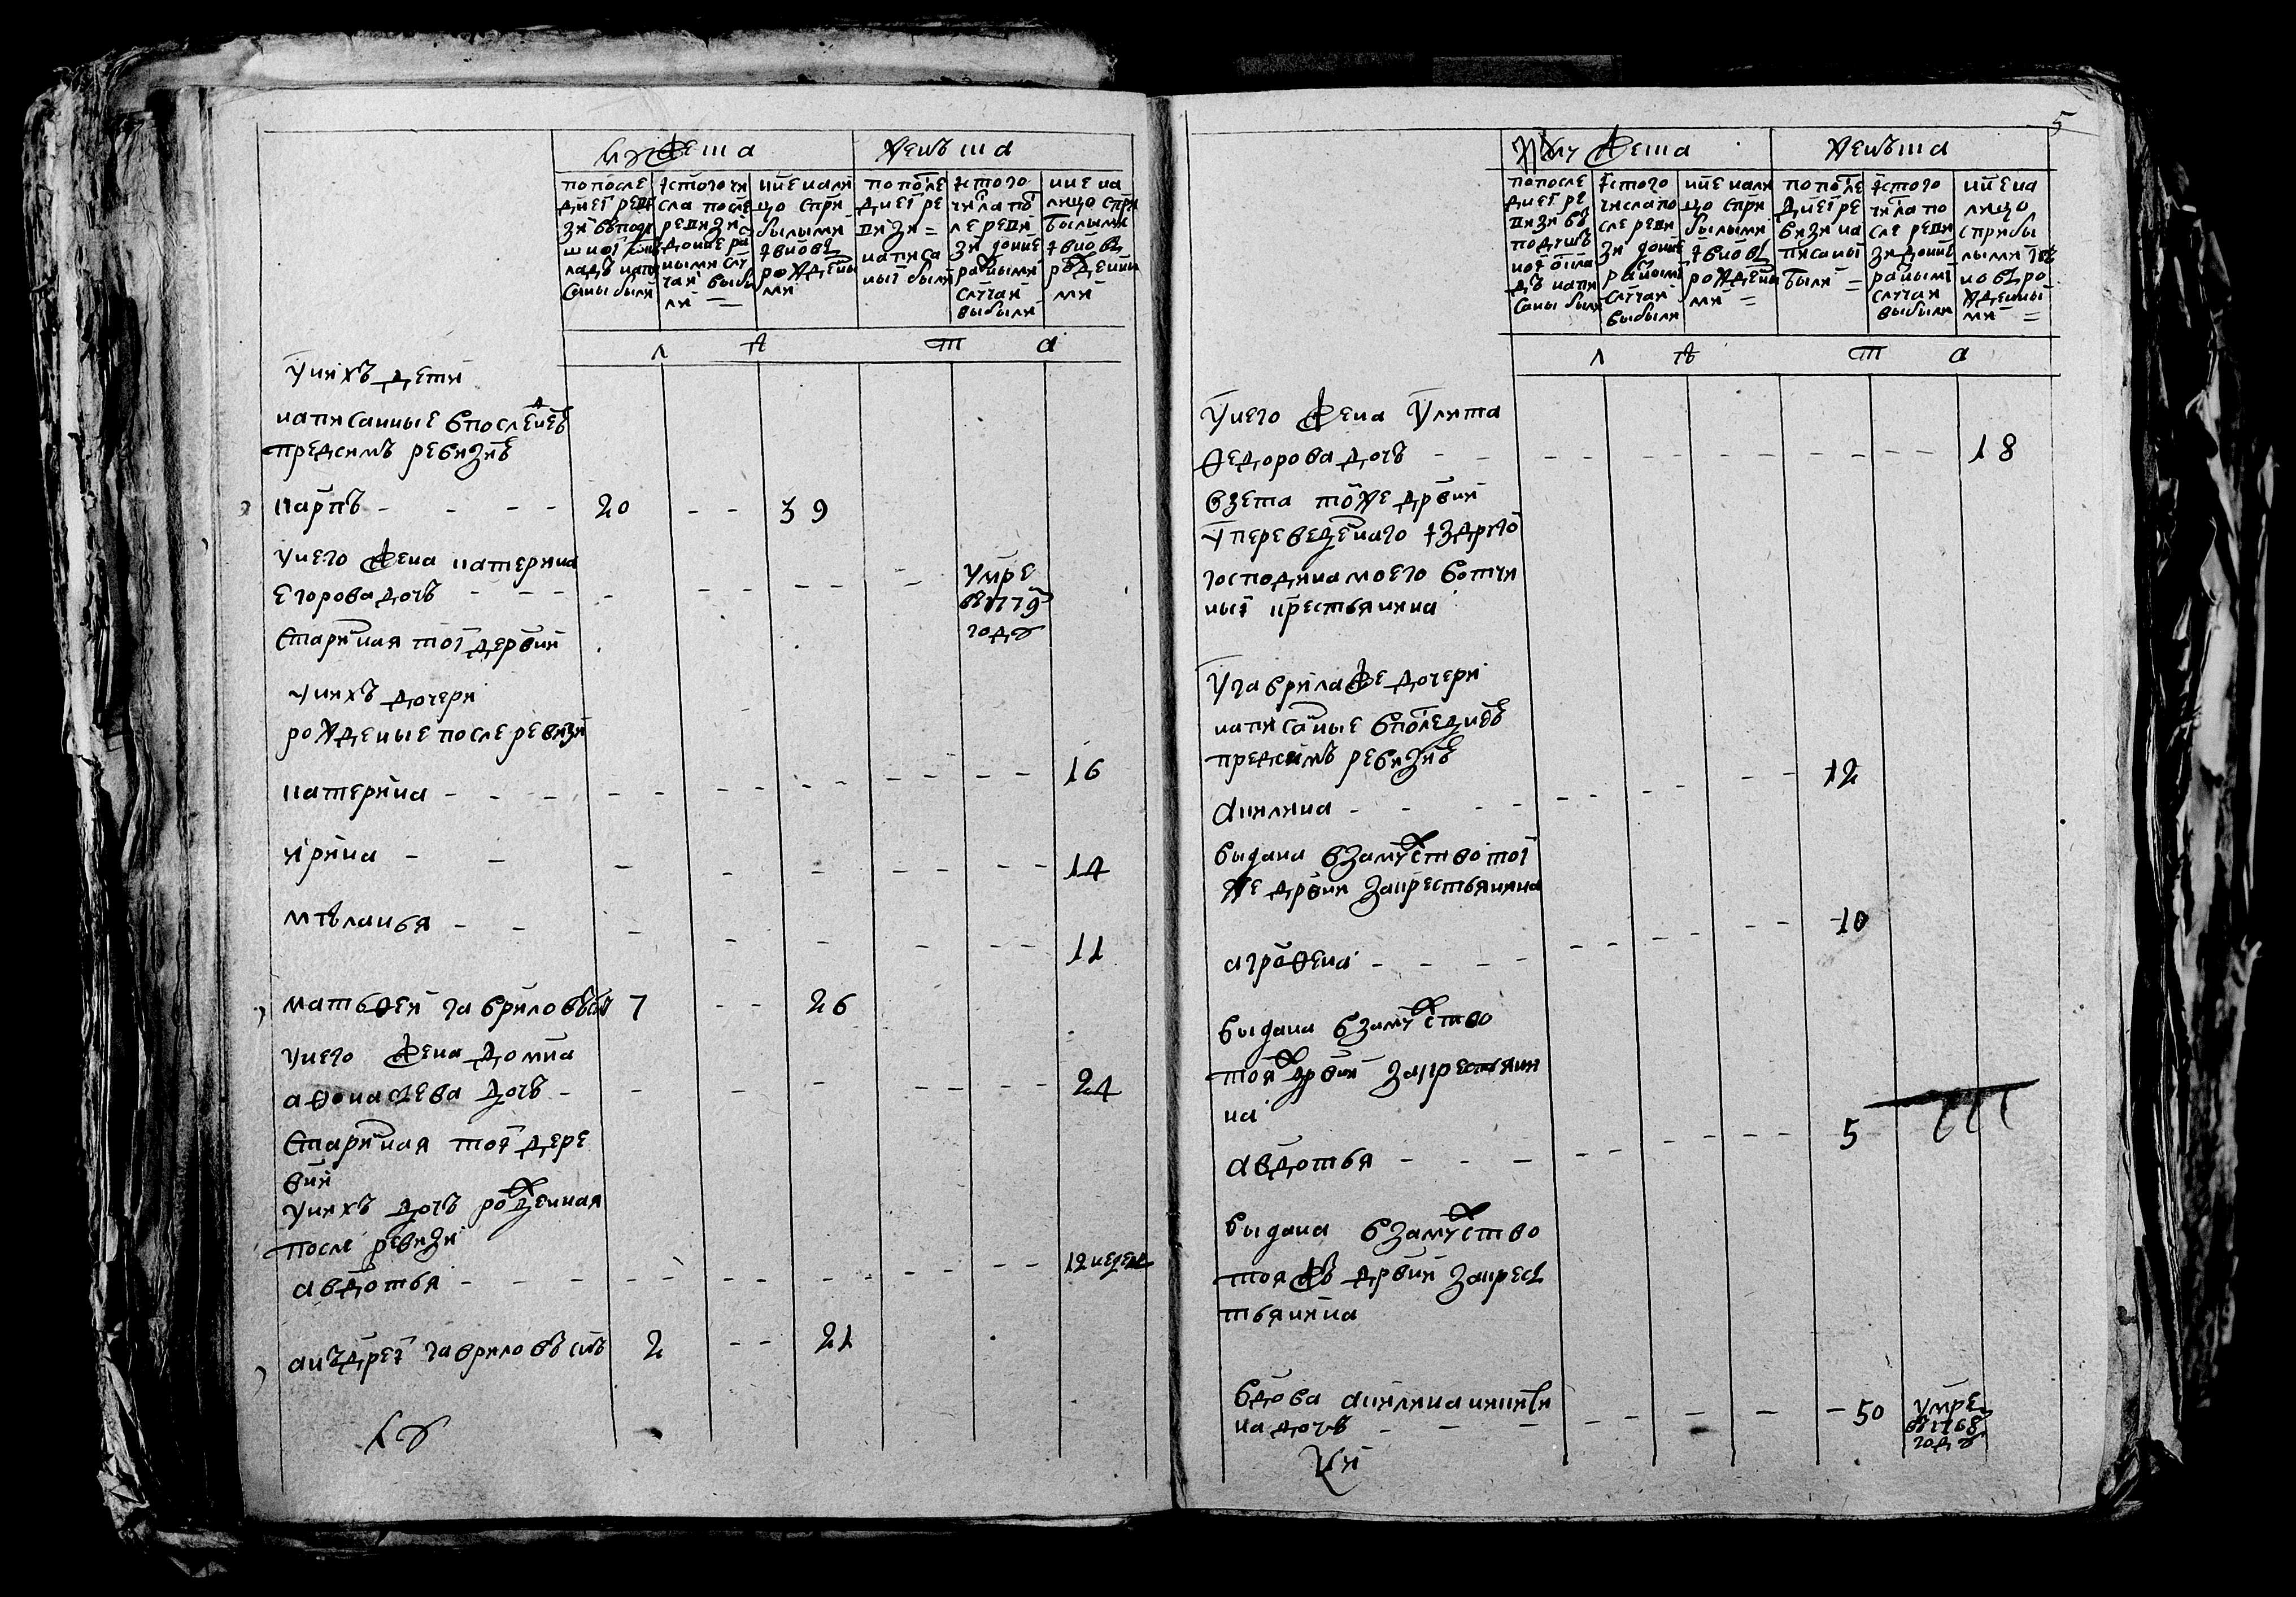 мужеска
женъска
по после
днеї реви
зиї въ подꙋ
шноі окъ
ладъ напи
саны были
ис того чи
сла после
ревизиї =
до ныне ра
ными слꙋ
чаи выбы
ли =
ныне нали
цо с при
былыми
и вновь
рожденны
ми
по после
днеї ре
визи =
написа
ныї были
ис того
числа по
сле реви
зи до ныне
разными
слꙋчаи
выбыли
ныне на
лицо с при
былыми
и вновь
рожденны
ми
л ѣ т а
У нихъ дети
написанные в последнеѣ
пред симъ ревизиѣ
Карпъ - - - - 20 - - 39
У него жена катерина
егорова дочь - - - - - - - - - умре
въ 1779
годꙋ
старинная тоі деревни
У нихъ дочери
рожденые после ревизи
катерина - - - - - - - - - - - - 16
ирина - - - - - - - - - 14
мѣланья - - - - - - - - 11
матвѳей гавриловъ сынъ 7 - - 26
У него жена домна
аѳонасева дочь - - - - - - - - 24
старинная тоі дере
вни
У нихъ дочь рожденная
после ревизи
авдотья - - - - - - - - - - - - 12 недель
анъдреі гавриловъ снъ 2 - - 21
5
мꙋжеска
женъска
по после
днеї ре
визи въ
подꙋшъ
ноі окла
дъ напи
саны были
ис того
числа по
сле реви
зи до ныне
разными
слꙋчаи
выбыли
ныне нали
цо с при
былыми
и вновь
рожденны
ми =
по после
днеї ре
визи на
писаны
были =
ис того
числа по
сле реви
зи до ныне
разными
слꙋчаи
выбыли
ныне на
лицо
с прибы
лыми и въ
новь ро
жденны
ми =
л ѣ т а
У него жена Улита
ѳедорова дочь - - - - - - - - - - - 18
взета тоже дрвни
У переведенаго из дрꙋгоі
господина моего вотчи
ныі крестьянина
У гаврила же дочери
написаные в последнеѣ
пред симъ ревизиѣ
акилина - - - - - - - - - - 12
выдана в замꙋжство тоі
же дрвни за крестьянина
агроѳена - - - - - - - - - - 10
выдана в замꙋжство
тоя ж дрвни за крестьяни
на
авдотья - - - - - - - - - 5
выдана в замꙋжство
тоя жъ дрвни за крес
тьянина
вдова акилина никити
на дочь - - - - - - - - 50 умре
въ 1768
годꙋ